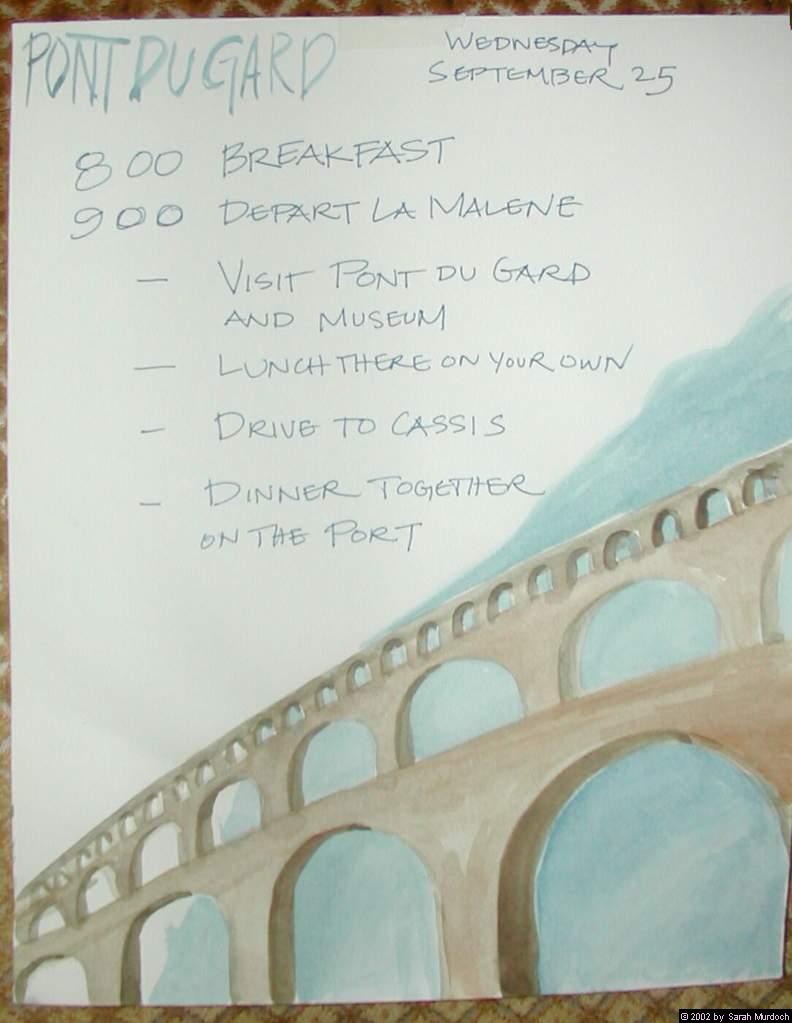 PONT DU GARD
WEDNESDAY
SEPTEMBER 25
8 00 BREAKFAST
9 00 DEPART LA MALENE
— VISIT PONT DU GARD
AND MUSEUM
— LUNCH THERE ON YOUR OWN
— DRIVE TO CASSIS
— DINNER TOGETHER
ON THE PORT
© 2002 by Sarah Murdoch